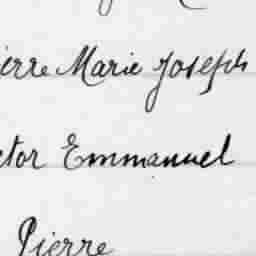 ierre Marie Joseph
ctor Emmanuel
Pierre